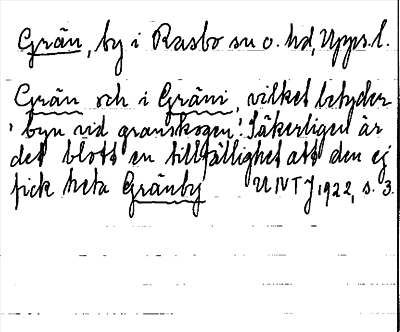 Grän, by i Rasbo sn o. hd, Upps. l.
Grän och i Gräni, vilket betyder
'byn vid granskogen'. Säkerligen är
det blott en tillfällighet att den ej
fick heta Gränby UNT 1922, s. 3.